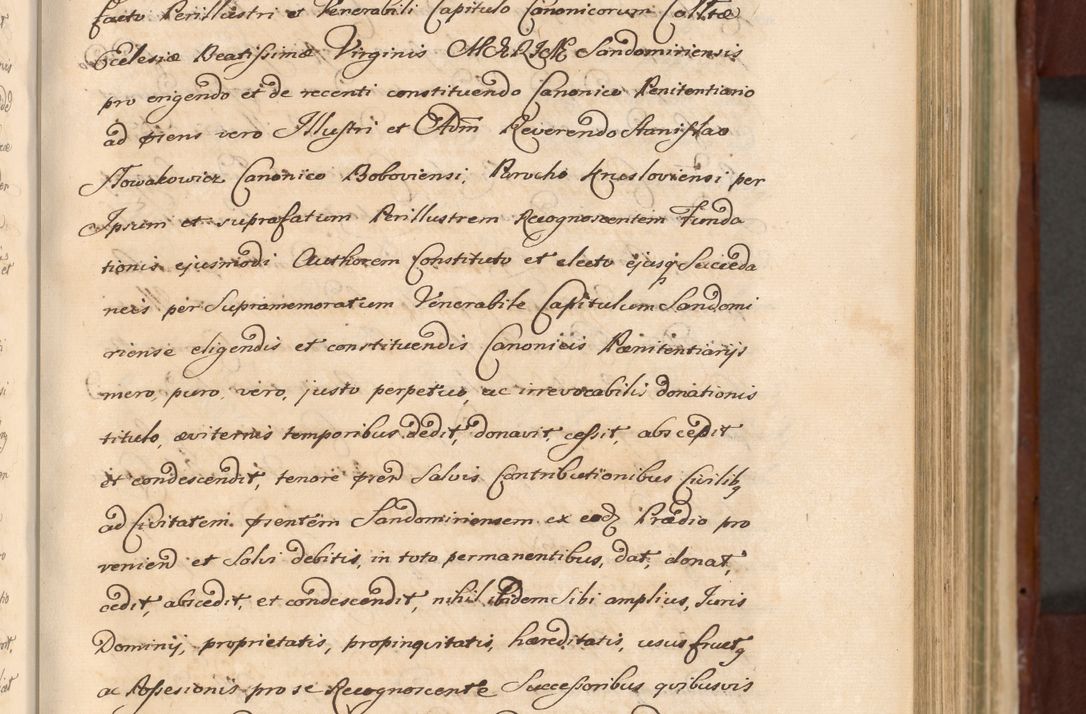 facto Perillustri et Venerabili Capitulo Canonicorum Colltæ
Ecclesiæ Beatissimæ Virginis MARIÆ Sandomiriensis
pro erigendo et de recenti constituendo Canonico Penitentiario
ad pñens vero Illustri et Adm Reverendo Stanislao
Nowakowicz Canonico Boboviensi, Parocho Krusloviensi per
Ipsum et supra fatum Perillustrem Recognoscentem Funda
tionis ejusmodi Authorem Constituto et electo ejusq Succeda
neis per Supramemoratum Venerabile Capitulum Sandomi
riense eligendis et constituendis Canonicis Pænitentiarijs
mero, puro, vero, justo perpetuo, ac irrevocabili donationis
titulo, æviternis temporibus dedit, donavit, cessit abscedit
et condescendit, tenore pñen Salvis Contributionibus Civilibq
ad Civitatem pñentem Sandomiriensem ex eod Prædio pro
venien et Solvi debitis, in toto permanentibus, dat, donat,
cedit, abscedit, et condescendit, nihil ibidem Sibi amplius, Juris
Dominij, proprietatis, propinquitatis, hæreditatis, usus fructq
ac Possesionis pro se Recognoscente Successoribus quibusvis